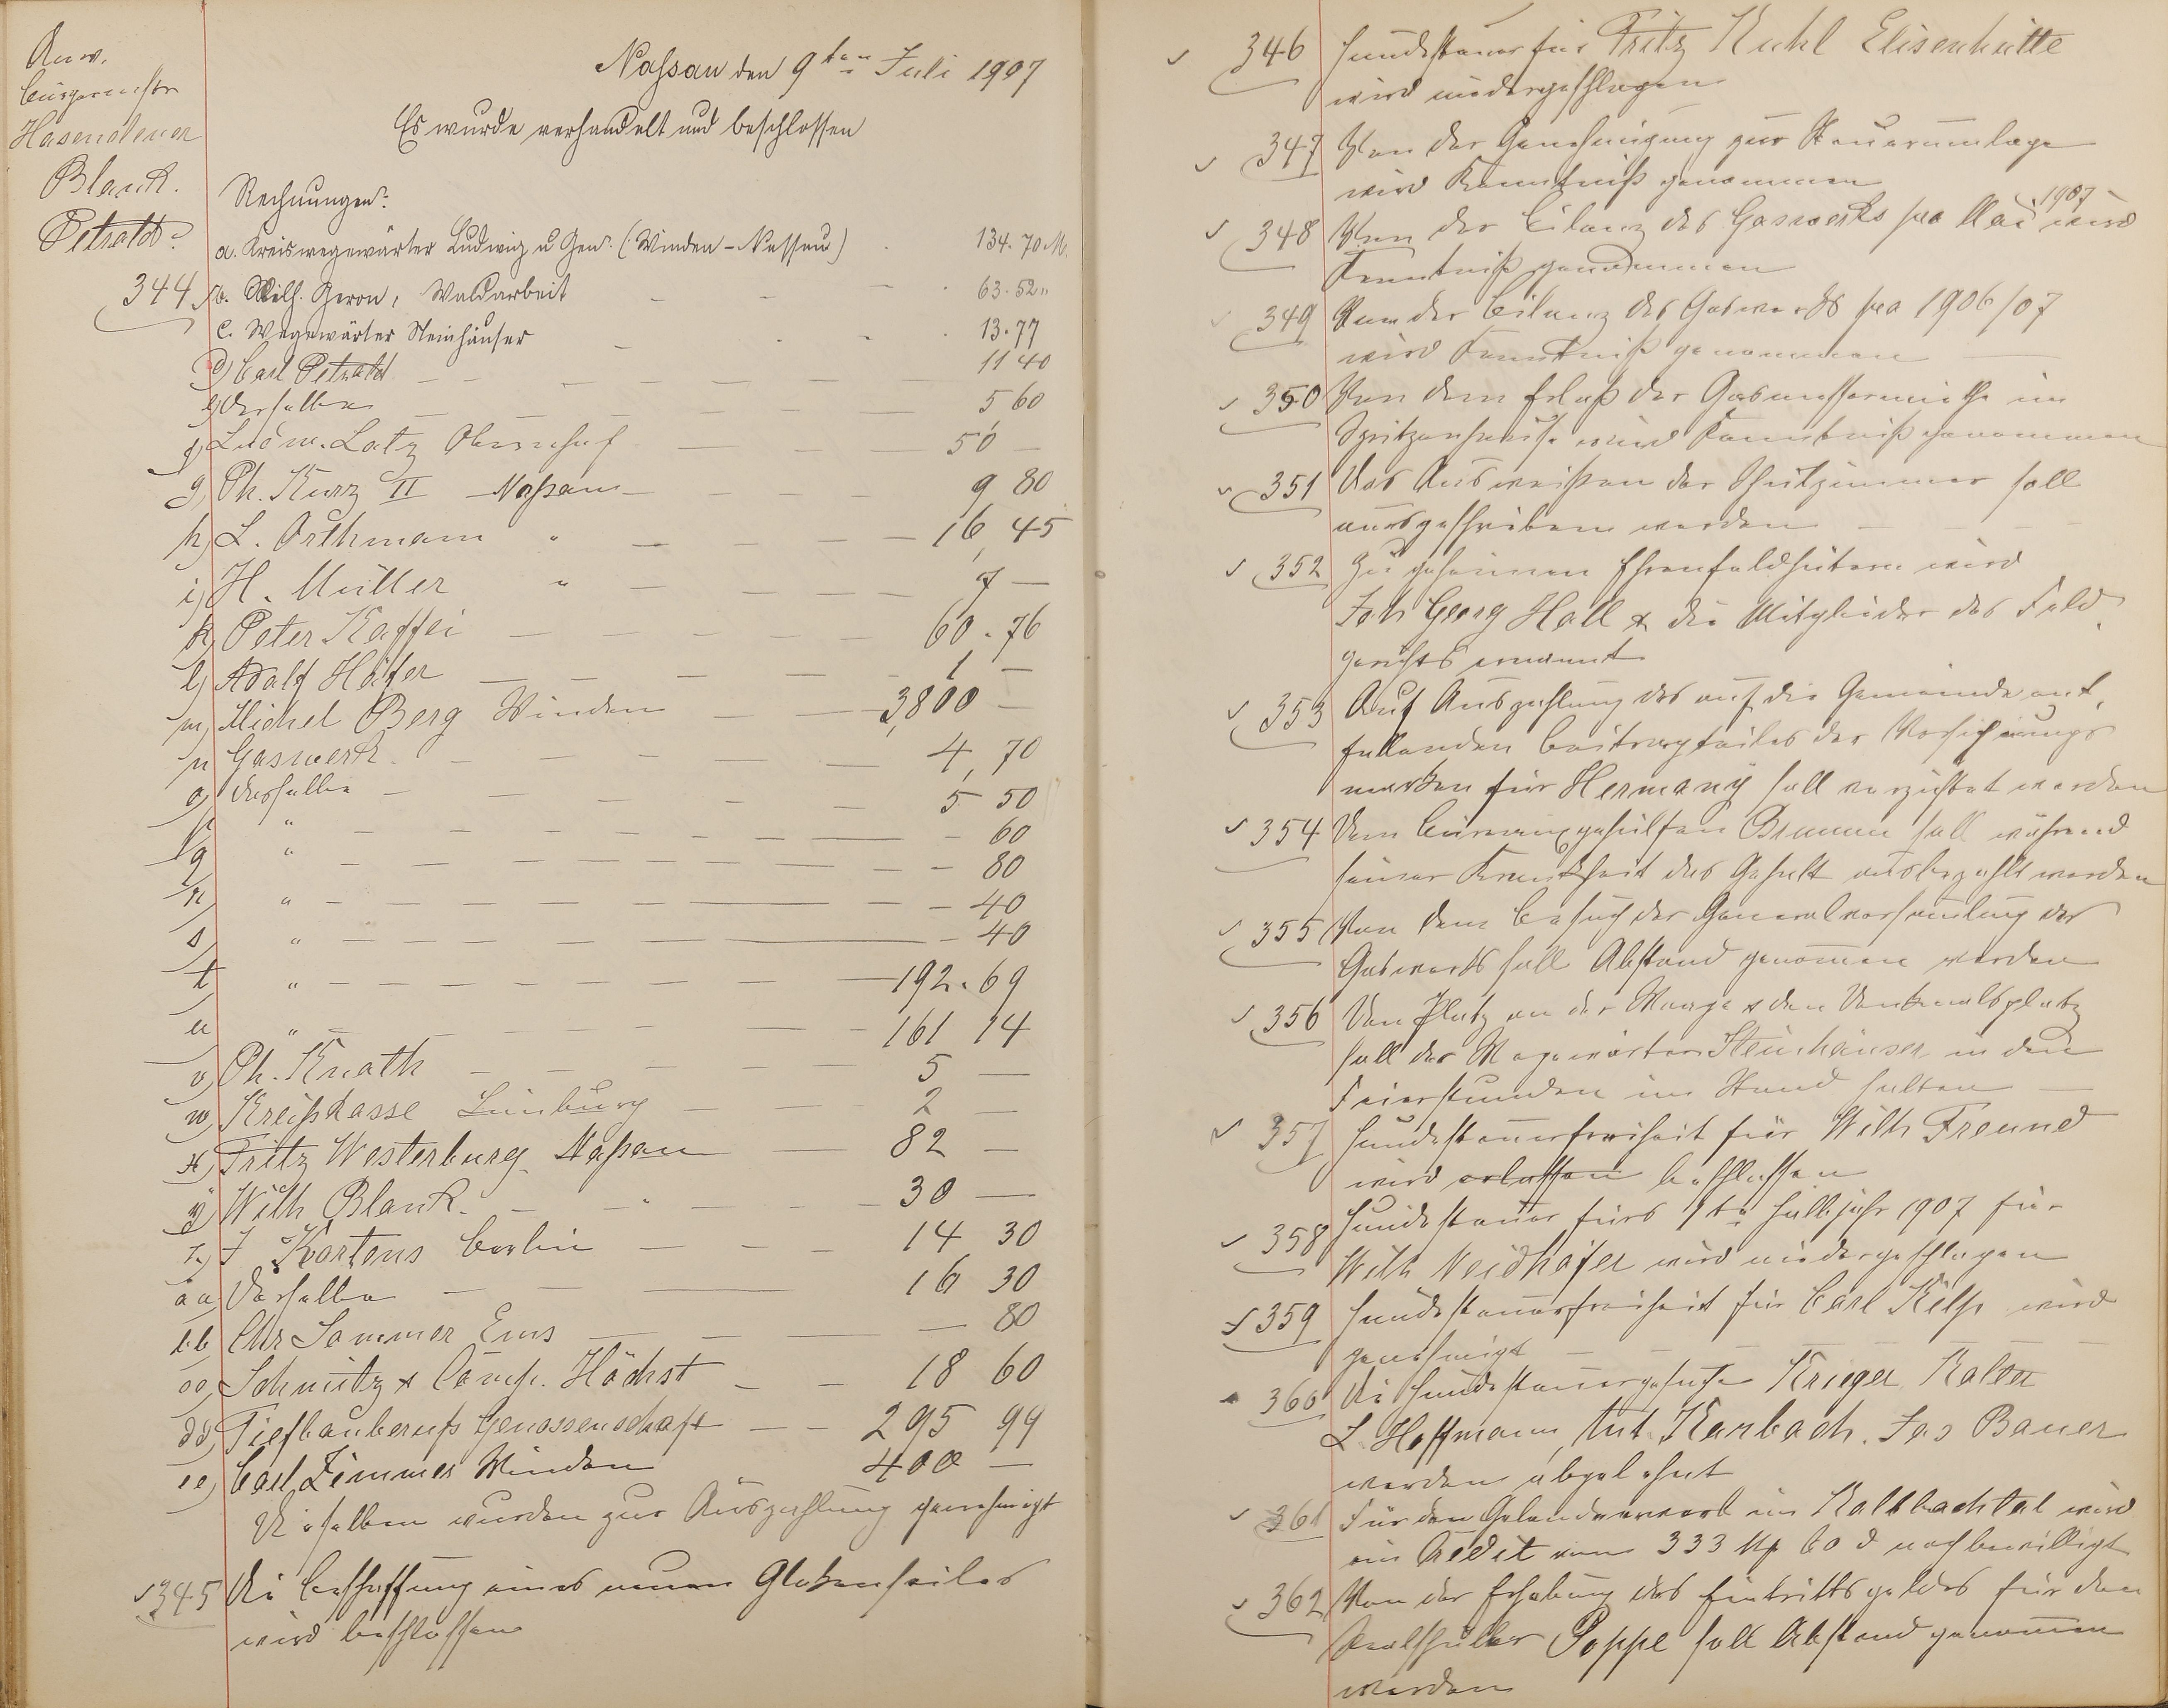 Anw.
Bürgermstr
Hasenclever
Blank.
Petraldt
Naßau den 9ten Juli 1907
Es wurde verhandelt und beschlossen
Rechnungen:
a. Kreiswegewärter Ludwig u Gen. (Winden-Nassau) 134.70 M.
344 b. Wilh. Geron, Waldarbeit 63.52 "
c. Wegewärter Steinhäuser 13.77
d) Carl Petraldt 11 40
e) Derselbe 5,60
f) Ludw. Latz Obernhof 50 —
g) Ph. Kurz II Naßau 9 80
h) L. Orthmann " 16,45
i) H. Müller " 7 —
k) Peter Kaffei 60.76
l) Adolf Höfer 1 —
m) Michel Berg Winden 3,800 —
n) Gaswerk 4,70
o) dasselbe 5 50
p " 60
q " 80
r) " 40
s " 40
t " 192.69
u " 161 14
v) Ph. Knoth 5 —
w) Kreißkasse Limburg 2 —
x) Fritz Westerburg Naßau 82 —
y) Wilh Blank " 30 —
z) J Kortens Berlin 14 30
aa) Derselbe 16 30
bb Chr Sommer Ems 80
cc) Schmitz & Comp. Höchst 18 60
dd) Tiefbauberufs Genossenschaft 295 99
ee) Carl Zimmer Winden 400 —
Dieselben wurden zur Auszahlung genehmigt
345 Die Beschaffung eines neuen Glokenseiles
wird beschlossen
346 Hundesteuer für Fritz Kuhl Elisenhütte
wird niedergeschlagen
347 Von der Genehmigung zur Steuerumlage
wird Kenntniß genommen
348 Von der Bilanz des Gaswerks pro Mai 1907 wird
Kenntniß genommen
349 Von der Bilanz des Gaswerks pro 1906/07
wird Kenntniß genommen
350 Von dem Erlaß der Gasmessermiethe im
Spritzenhause wird Kenntniß genommen
351 Das Ausweißen der Schulzimmer soll
ausgeschrieben werden
352 Zu geheimen Ehrenfeldhütern wird
Joh Georg Hall & die Mitglieder des Feld-
gerichts ernannt
353 Auf Auszahlung des auf die Gemeinde ent-
fallenden Beitragsteiles der Versicherungs
marken für Hermany soll verzichtet werden
354 Dem Büreaugehülfen Bremm soll während
seiner Krankheit das Gehalt ausbezahlt werden
355 Von dem Besuch der Generalversamlung des
Gaswerks soll Abstand genommen werden
356 Den Platz an der Waage & den Denkmalsplatz
soll der Wegewärter Steinhäuser in den
Feierstunden im Stand halten
357 Hundesteuerfreiheit für Wilh Freund
wird erlassen beschlossen
358 Hundesteuer fürs 1te Halbjahr 1907 für
Wilh Neidhöfer wird niedergeschlagen
359 Hundesteuerfreiheit für Carl Kilp wird
genehmigt
360 Die Hundesteuergesuche Krieger Kalter
L. Hoffmann, Ant. Karbach. Jos Bauer
werden abgelehnt
361 Für den Geländeerwerb im Kaltbachtal wird
ein Credit von 333 M 60 d nachbewilligt
362 Von der Erhebung des Eintrittsgeldes für den
Realschüler Poppe soll Abstand genommen
werden